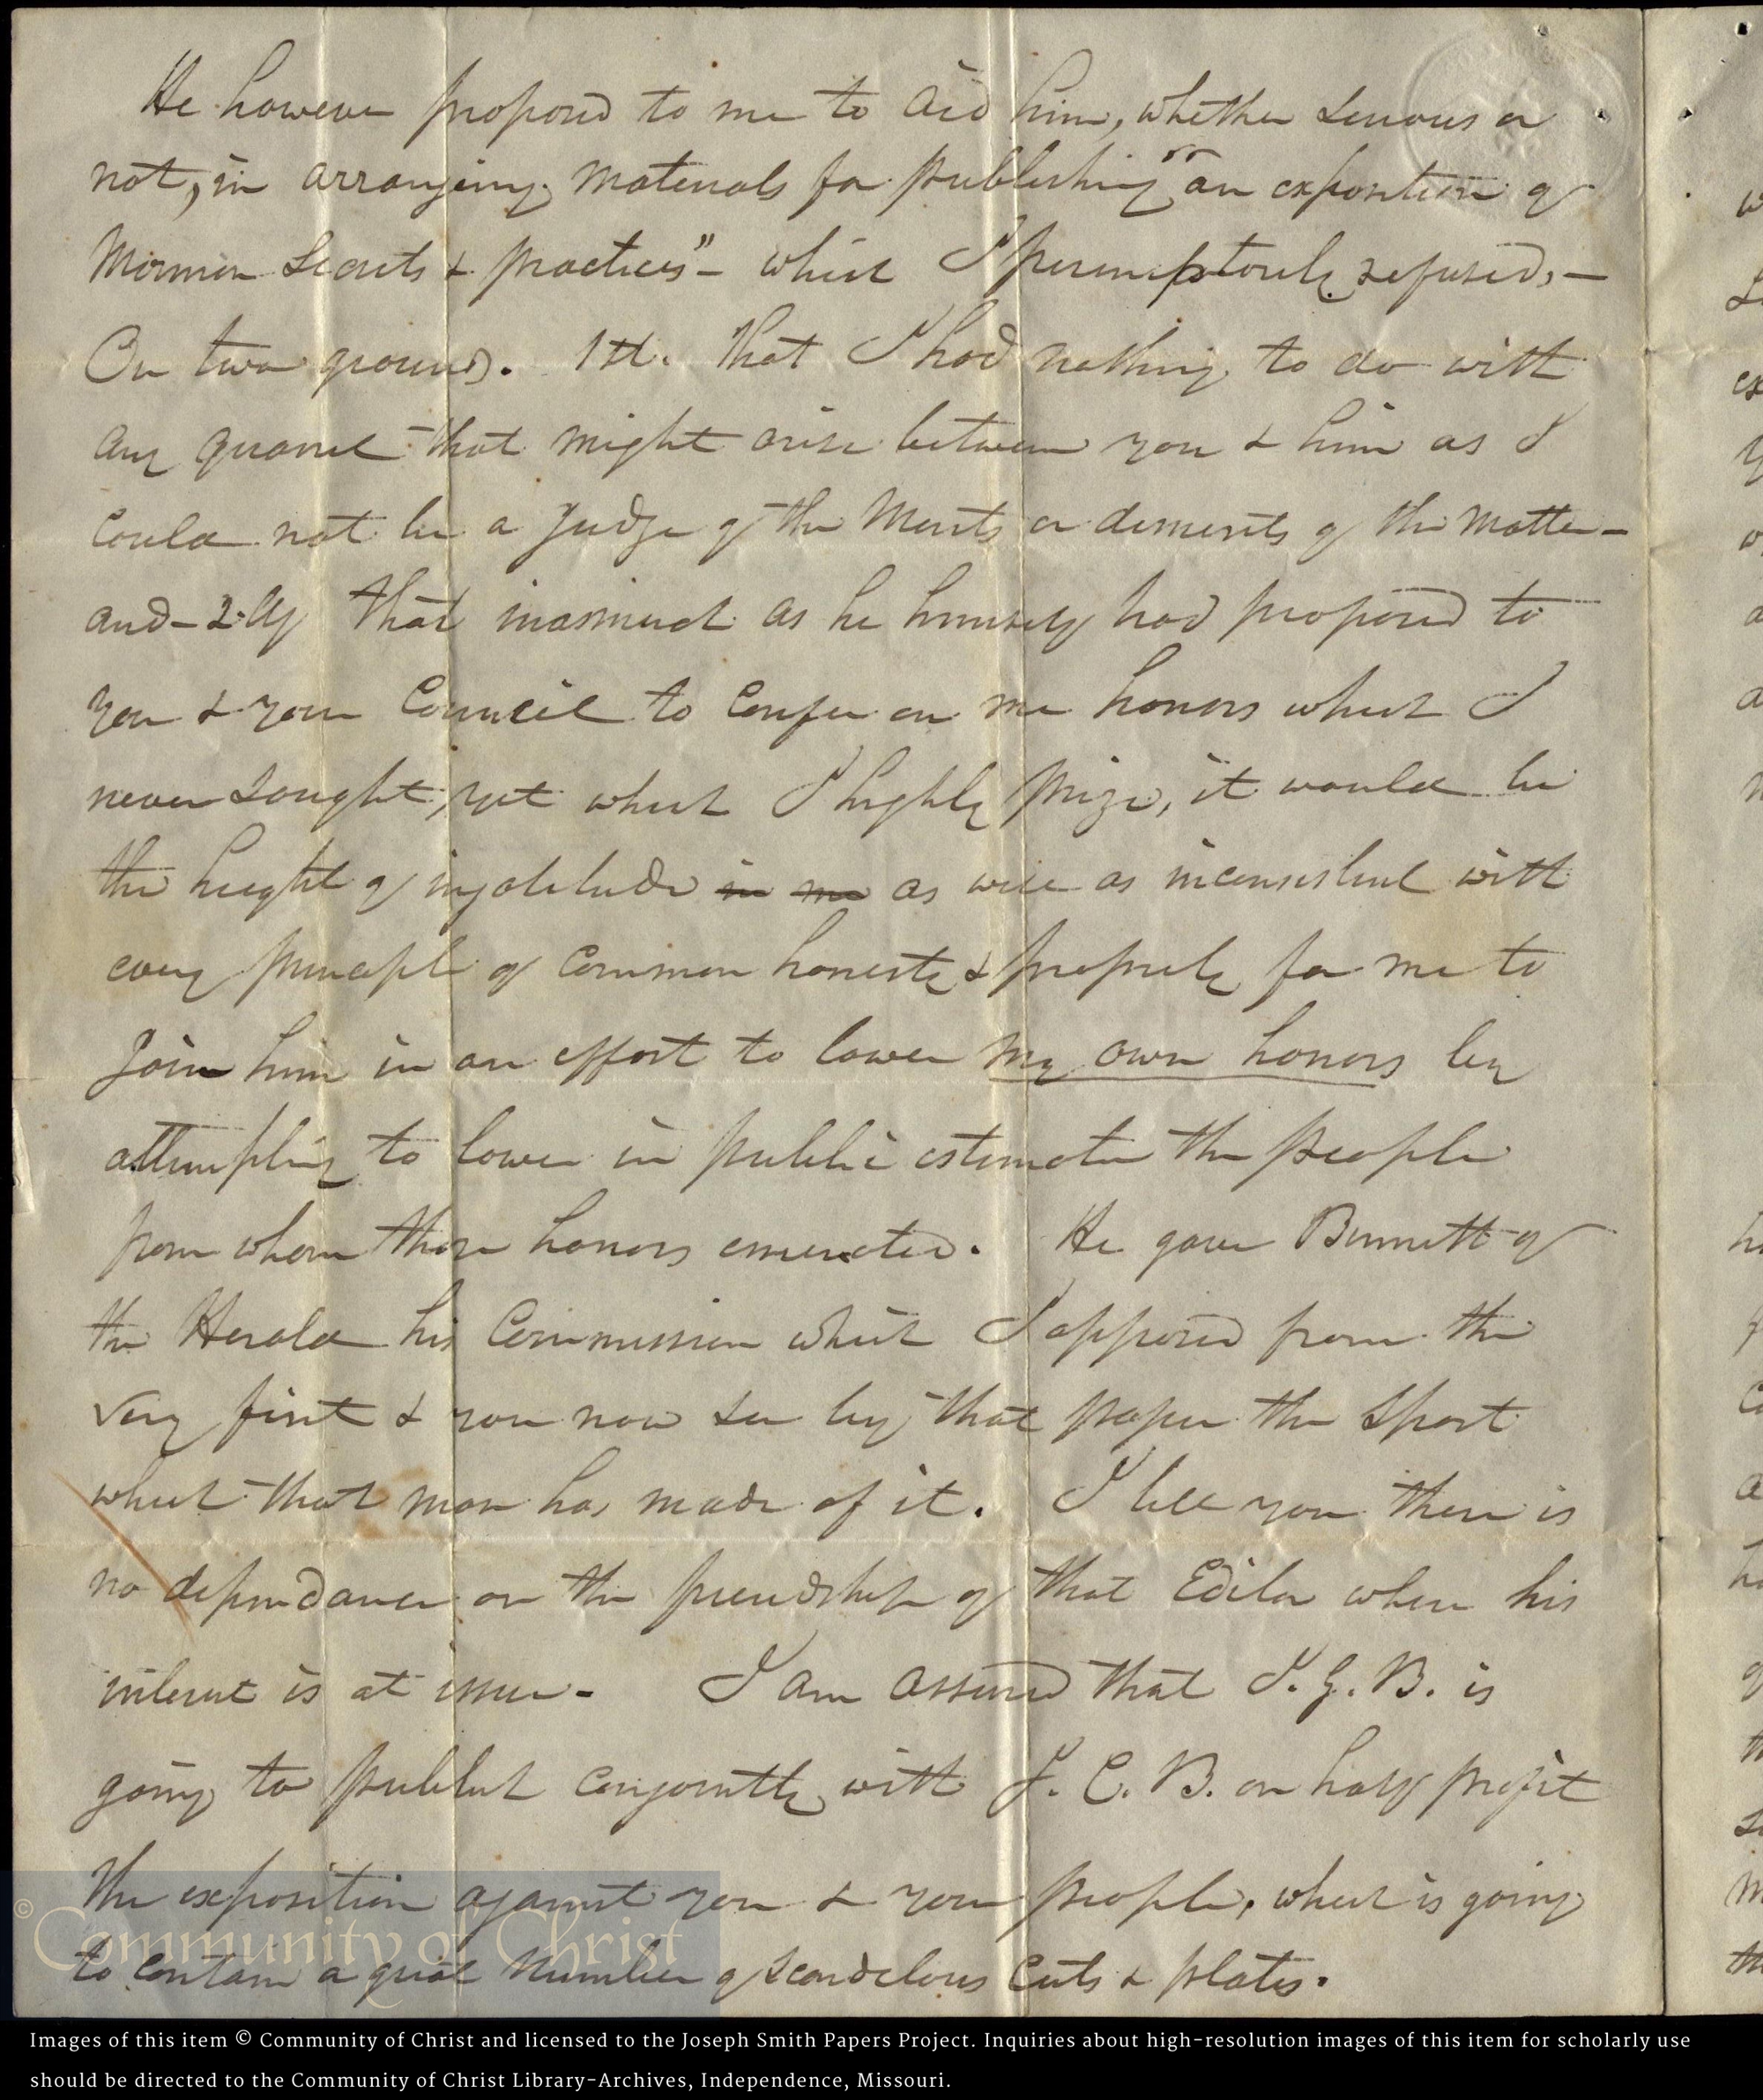 He however proposed to me to aid him, whether serious or
not, in arranging materials for publishing "an exposition of
Mormon Secrets & practices" – which I peremptorily refused, –
On two grounds. 1st. That I had nothing to do with
any quarrel that might arise between you & him as I
could not be a Judge of the merits or demerits of the matter –
and – 2.dly That inasmuch as he himself had proposed to
you & your Council to confer on me honors which I
never sought, yet which I highly prize, it would be
the height of ingratitude in me as well as inconsistent with
every principle of common honesty & propriety for me to
Join him in an effort to lower my own honors by
attempting to lower in public estimation the people
from whom those honors emenated. He gave Bennett of
the Herald his Commission which I opposed from the
very first & you now see by that paper the sport
which that man has made of it. I tell you there is
no dependance on the friendship of that Editor when his
interest is at issue – I am assured that J. G. B. is
going to publish conjointly with J. C. B. on half profit
the exposition against you & your people, which is going
to contain a great number of scandelous cuts & plates.
© Community of Christ
Images of this item © Community of Christ and licensed to the Joseph Smith Papers Project. Inquiries about high-resolution images of this item for scholarly use
should be directed to the Community of Christ Library-Archives, Independence, Missouri.